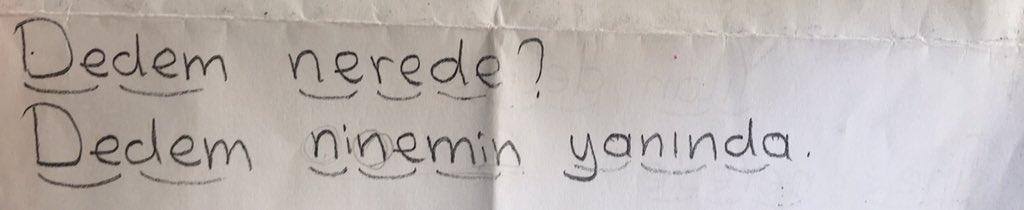 Dedem nerede?
Dedem ninemin yanında.